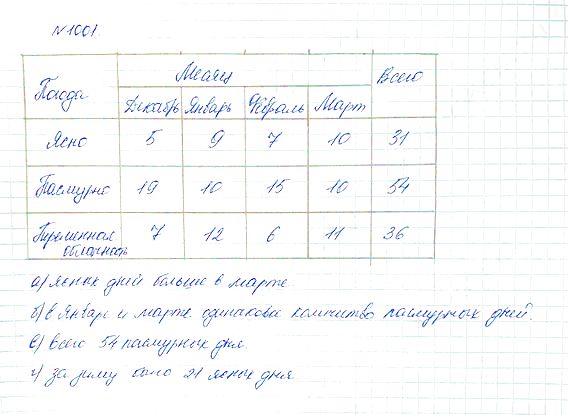 №1001.
Погода Месяц Всего
Декабрь Январь Февраль Март
Ясно 5 9 7 10 31
Пасмурно 19 10 15 10 54
Переменная облачность 7 12 6 11 36
а) ясных дней больше в марте.
б) в январе и марте одинаковое количество пасмурных дней.
в) всего 54 пасмурных дня.
г) за зиму было 21 ясных дня